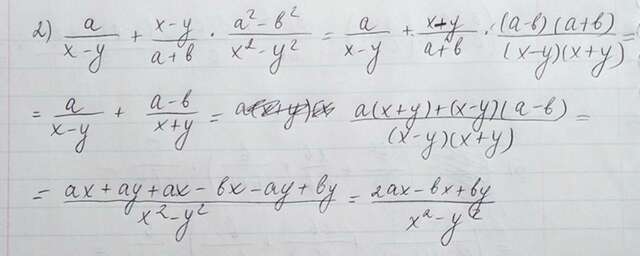 2) a/(x-y) + (x-y)/(a+b) · (a²-b²)/(x²-y²) = a/(x-y) + (x+y)/(a+b) · ((a-b)(a+b))/((x-y)(x+y)) =
= a/(x-y) + (a-b)/(x+y) = (a(x+y)+(x-y)(a-b))/((x-y)(x+y)) =
= (ax+ay+ax-bx-ay+by)/(x²-y²) = (2ax-bx+by)/(x²-y²)